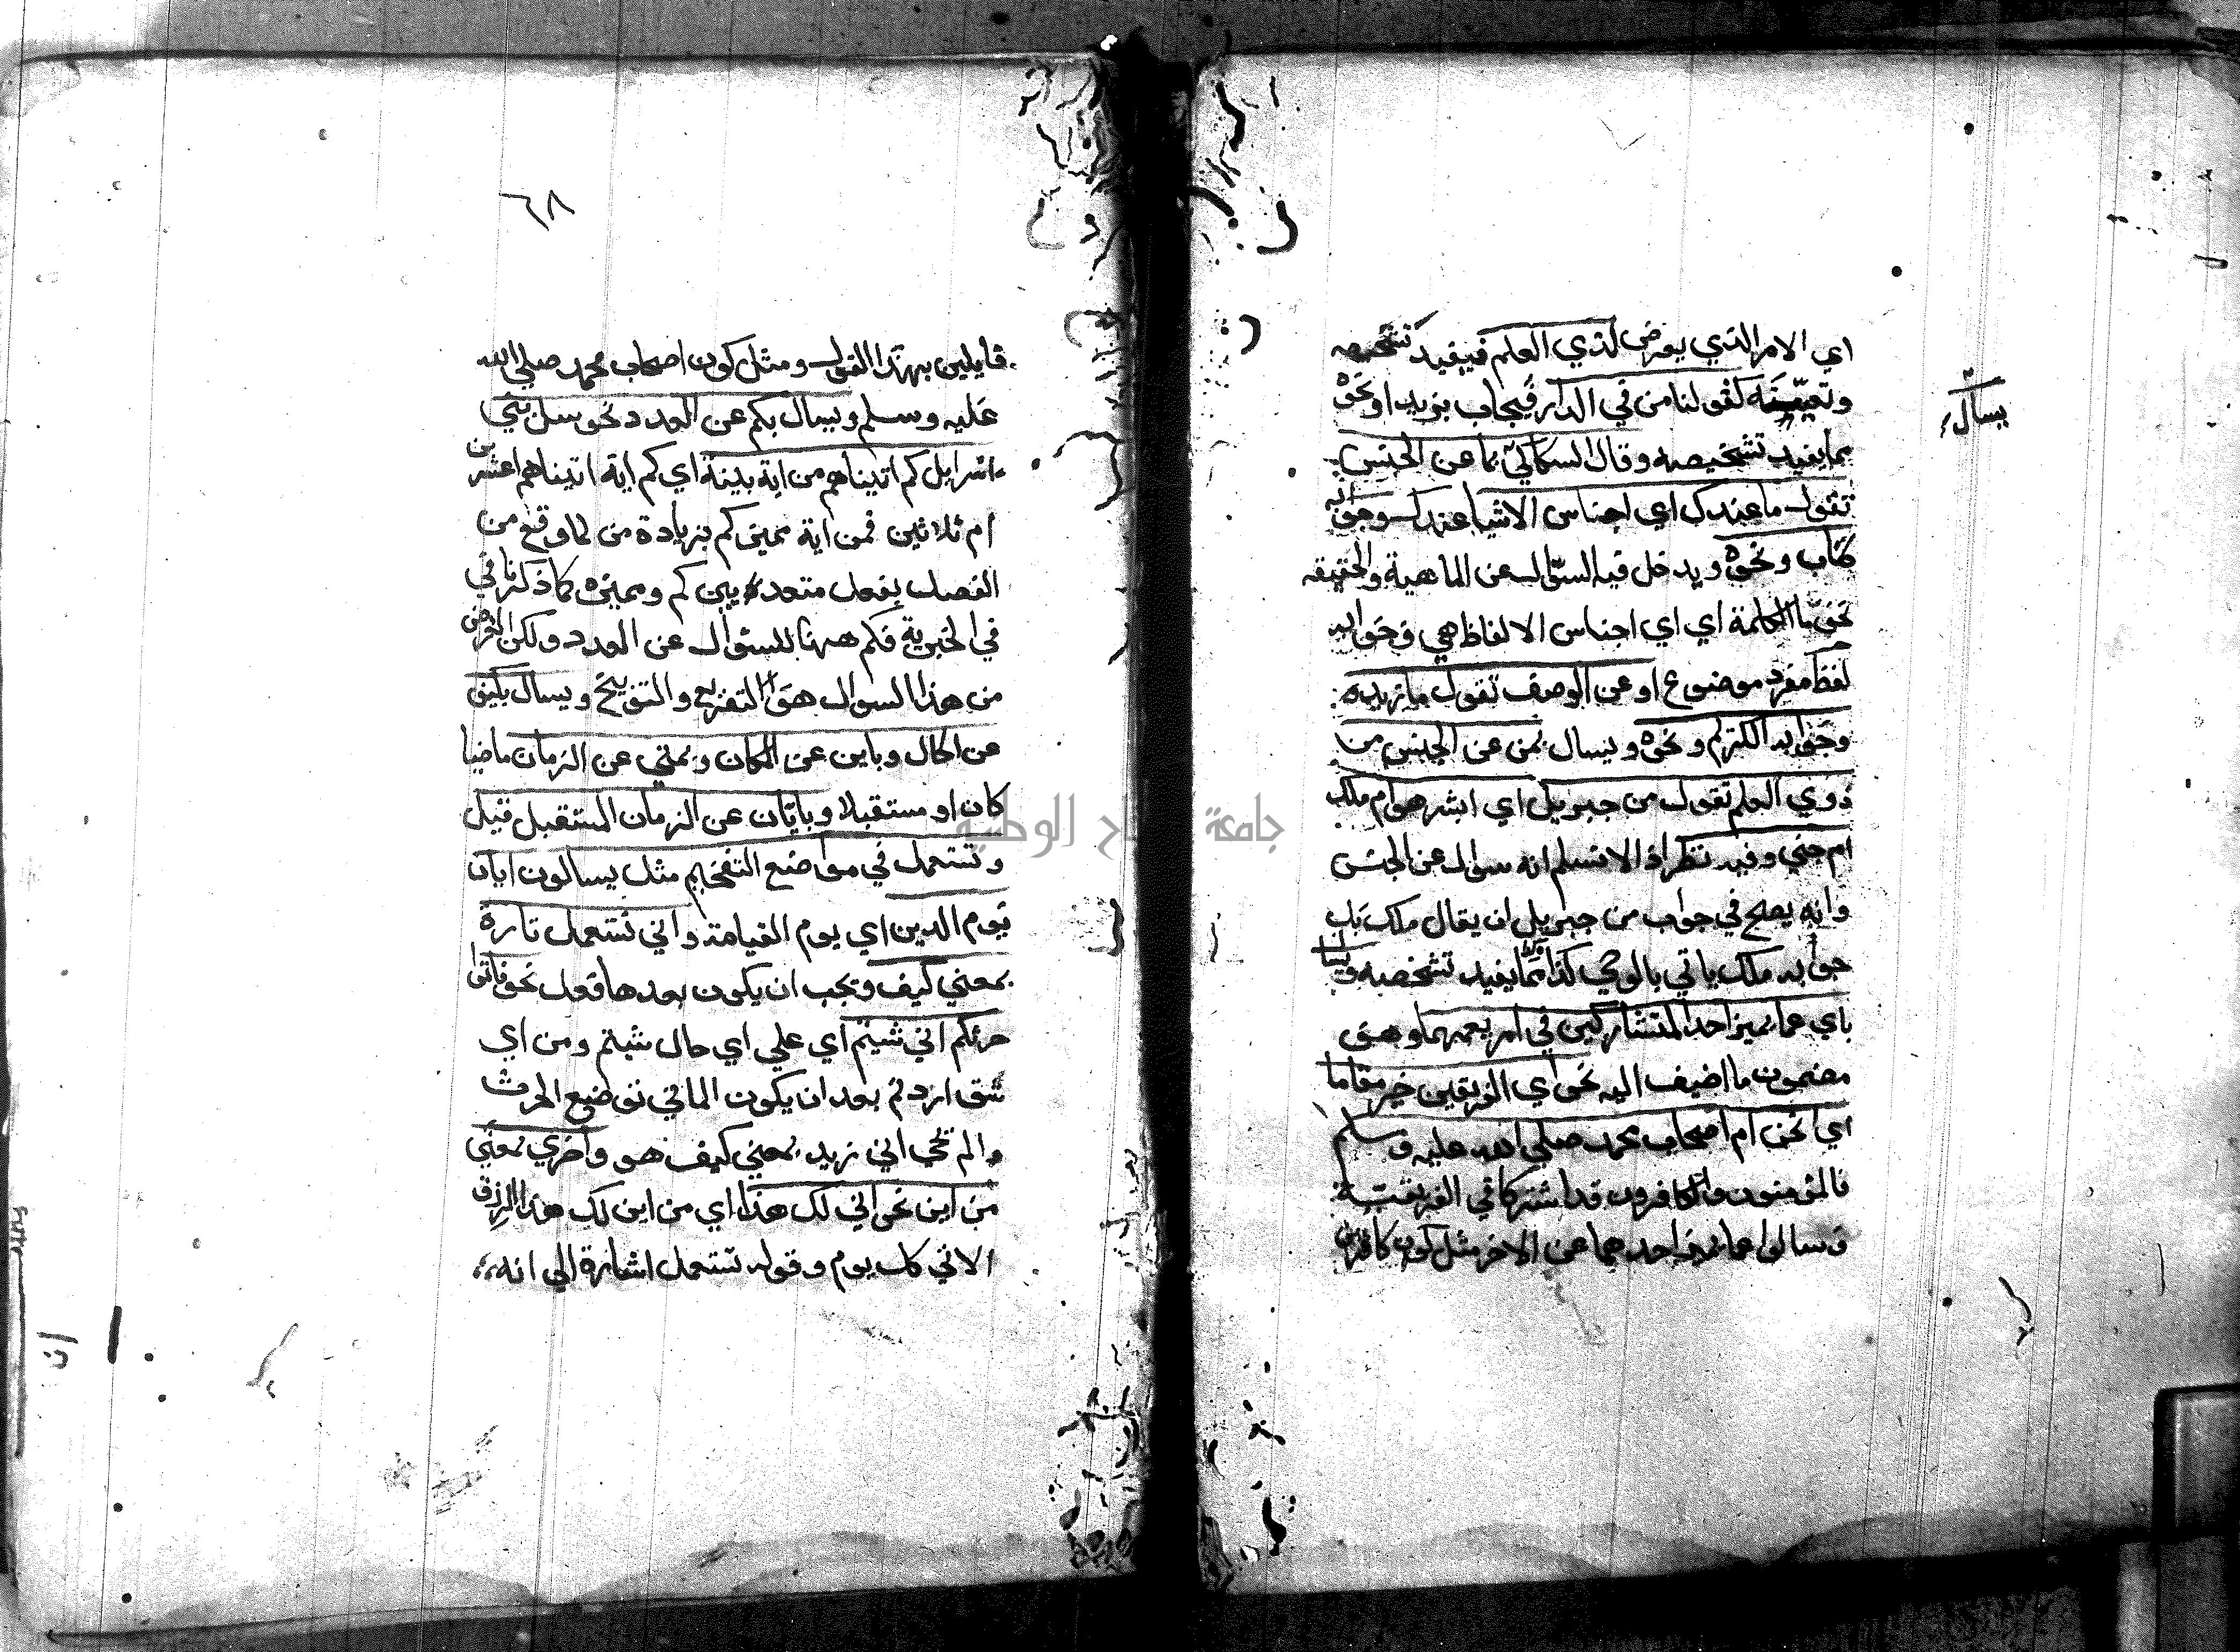 اي الامر الذي يعرض لذي العلم فيفيد تشخيصه
وتعينه كقولنا من في الدار فيجاب بزيد او نحوه
يسأل
مما يفيد تشخيصه وقال السكاكي بما عن الجنس
تقول ما عندك اي اجناس الاشيا عندك وجوابه
كتاب ونحوه ويدخل فيه السؤال عن الماهية والحقيقه
نحو ما الكلمة اي اي اجناس الالفاظ هي وجوابه
لفظ مفرد موضوع او عن الوصف تقول ما زيد
وجوابه الكريم ونحوه ويسال بمن عن الجنس من
ذوي العلم تقول من جبريل اي ابشر هو ام ملك
ام جني وفيه نظر اذ لا نسلم انه سوال عن الجنس
وانه يصلح في جواب من جبريل ان يقال ملك بل
جوابه ملك ياتي بالوحي كذا مما يفيد تشخصه
باي عما يميز احد المتشاركين في امر يعمهما وهو
مضمون ما اضيف اليه نحو اي الفريقين خير مقاما
اي نحن ام اصحاب محمد صلى الله عليه وسلم
فالمؤمنون والكافرون قد اشتركا في الفريقية
وسالوا عما يميز احدهما عن الاخر مثل كون كافرين
٦٨
قايلين بهذا القول ومثل كون اصحاب محمد صلي الله
عليه وسلم ويسال بكم عن العدد نحو سل بني
اسرايل كم اتيناهم من اية بينة اي كم اية اتيناهم اعشرين
ام ثلاثين فمن اية مميز كم بزيادة من لما وقع من
الفصل بفعل متعد بين كم ومميزه كما ذكرنا في
في الخبرية فكم ههنا للسئوال عن العدد ولكن الغرض
من هذا السوال هو التقريع والتوبيخ ويسال بكيف
عن الحال وباين عن المكان وبمتي عن الزمان ماضيا
كان او مستقبلا وبايّان عن الزمان المستقبل قيل
وتستعمل في مواضع التفخيم مثل يسالون ايان
يوم الدين اي يوم القيامة واني تستعمل تارة
بمعني كيف ويجب ان يكون بعدها فعل نحو فاتوا
حرثكم اني شيتم اي علي اي حال شيتم ومن اي
شق اردتم بعد ان يكون الماتي موضع الحرث
ولم تجي اني زيد بمعني كيف هو واخري بمعني
من اين نحو اني لك هذا اي من اين لك هذا الرزق
الاتي كل يوم وقوله تستعمل اشارة الي انه
ان